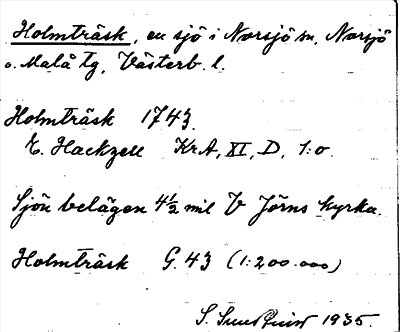 Holmträsk, en sjö i Norsjö sn, Norsjö
o. Malå tg, Västerb. l.
Holmträsk 1743.
E. Hackzell KrA, XI, D, 1:o.
Sjön belägen 4½ mil V Jörns kyrka.
Holmträsk G. 43 (1:200.000)
S. 1935